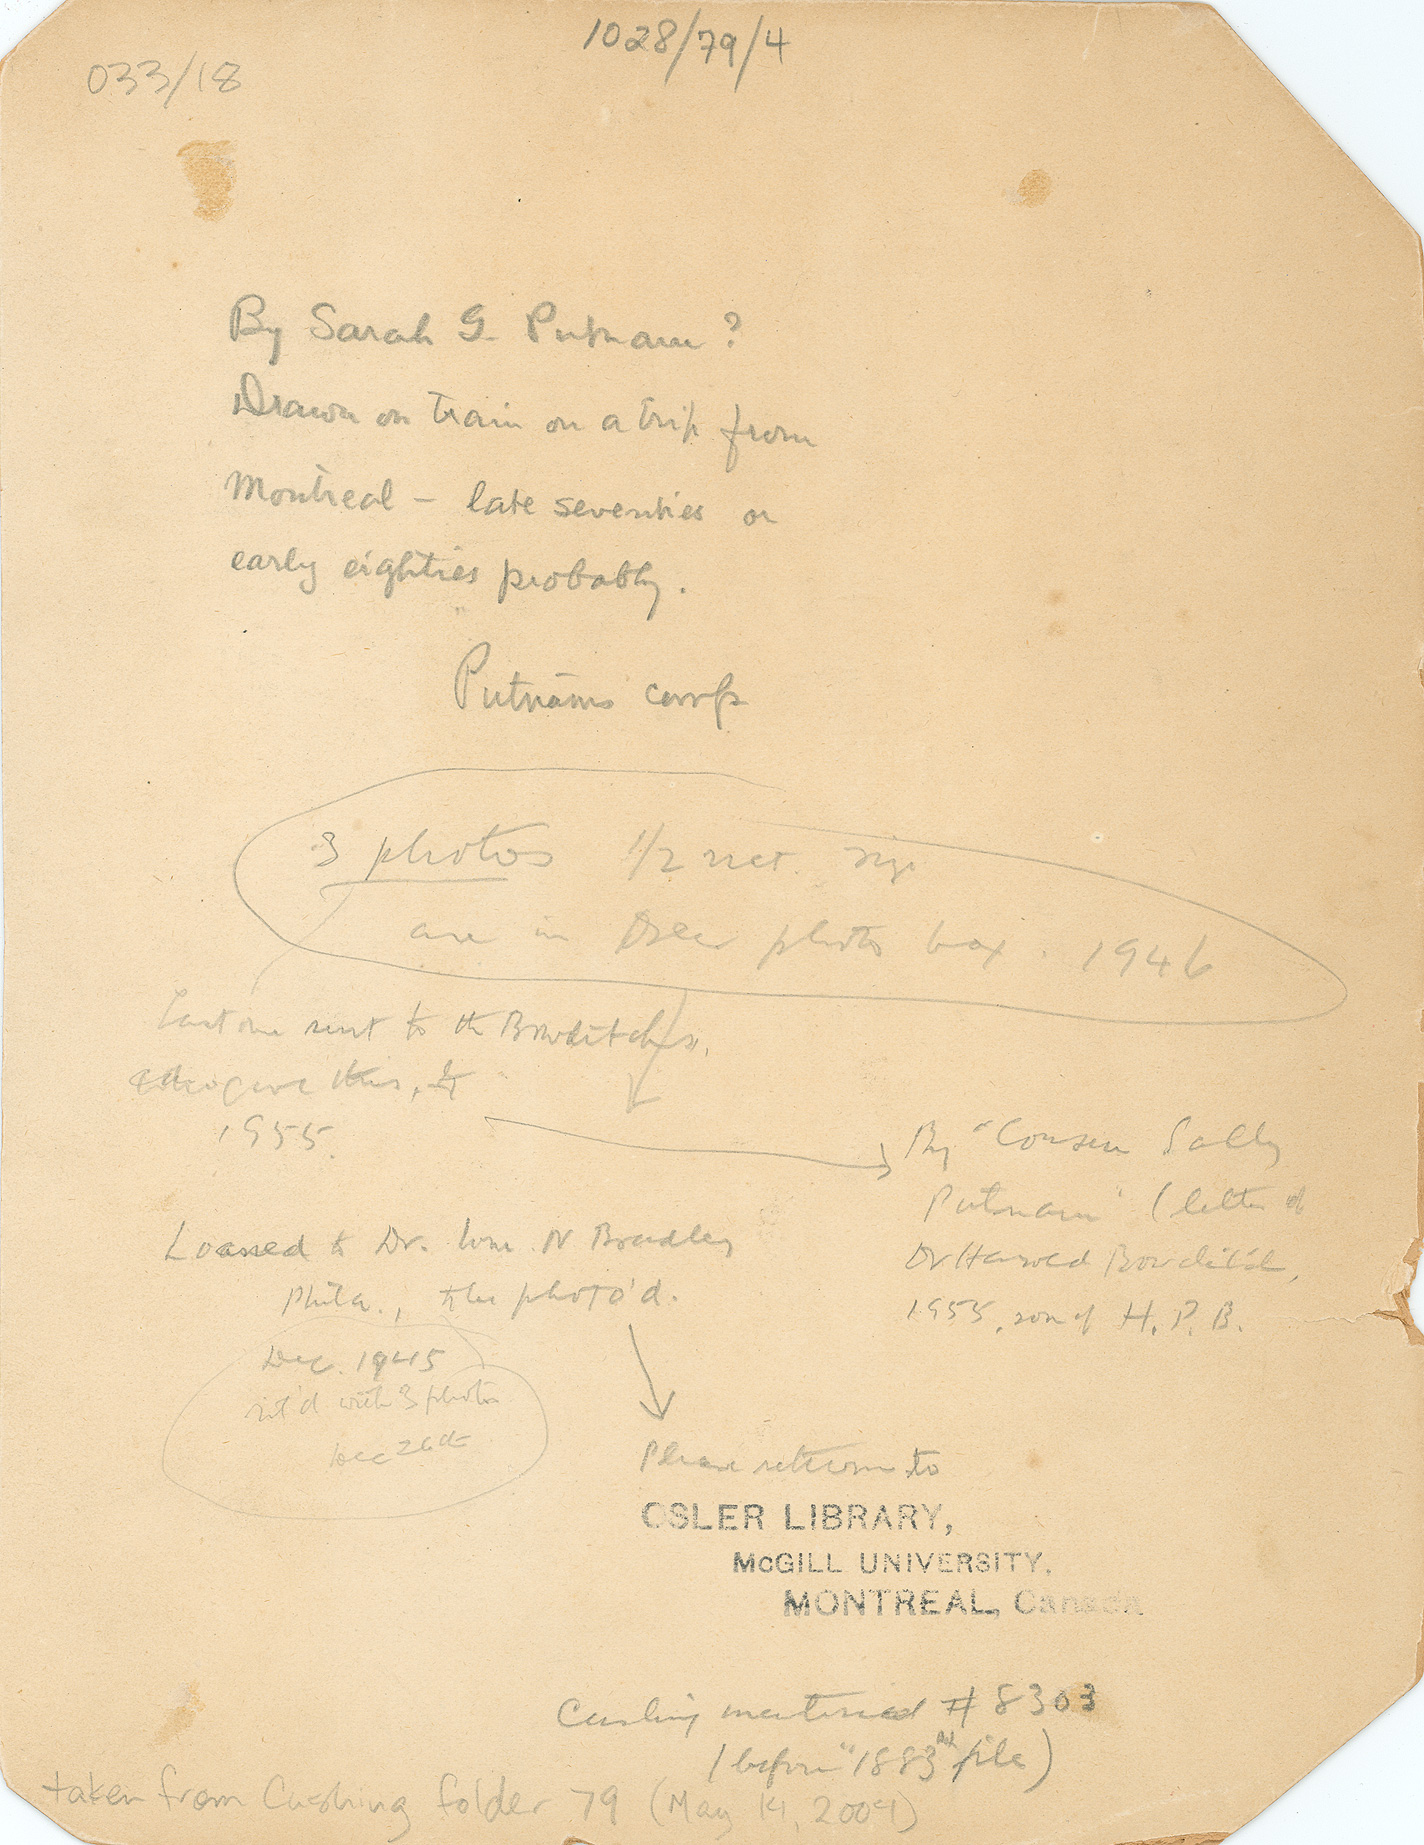 1028/79/4
033/18
By Sarah G. Putnam?
Drawn on train on a trip from
Montreal – late seventies or
early eighties probably.
Putnams
3 photos 1/2
are in Osler photo box. 1946
Last one sent to the Bowditches.
this,
1955.
By "Cousin Sally
Putnam" (letter of
Dr Harold Bowditch,
1955, son of H. P. B.
Loaned to Dr. Wm N Bradley
Phila., photo'd.
Dec. 1945
ret'd with 3 photos
Dec 26th
Please return to
OSLER LIBRARY,
McGILL UNIVERSITY,
MONTREAL, Canada
Cushing material # 8303
(before "1883" file)
taken from Cushing folder 79 (May 14, 2004)